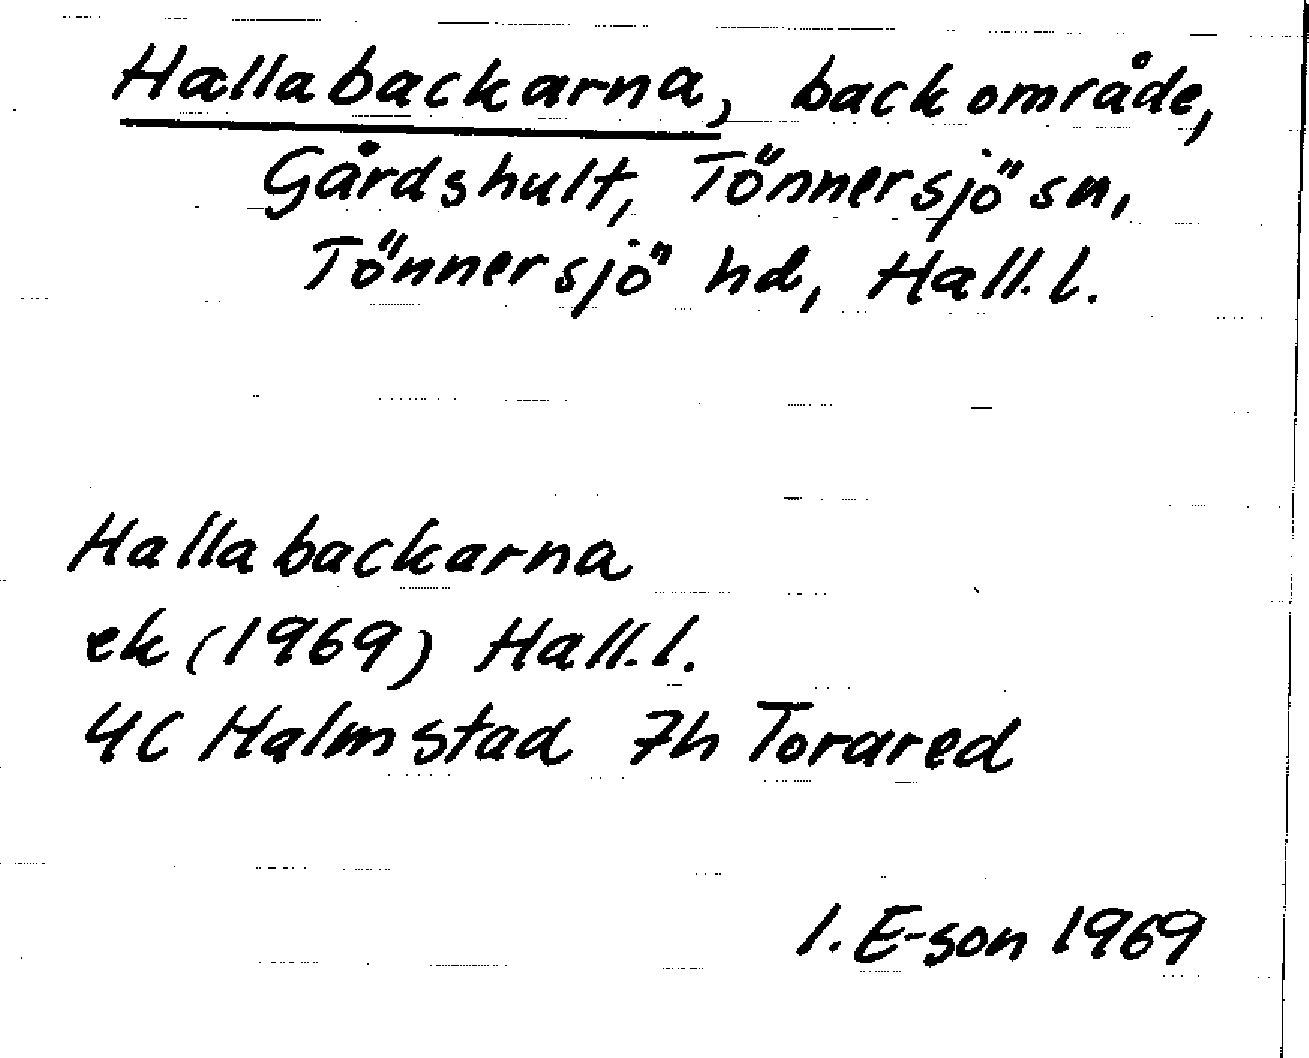 Hallabackarna, backområde,
Gårdshult, Tönnersjö sn,
Tönnersjö hd, Hall. l.
Hallabackarna
ek (1969) Hall. l.
4C Halmstad 7h Torared
I. E-son 1969